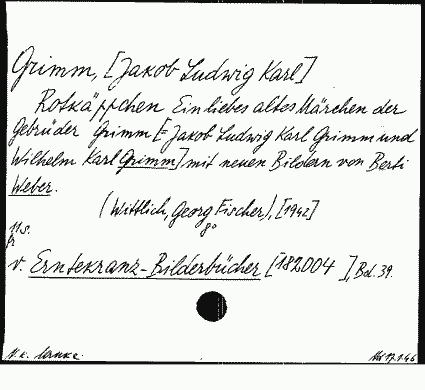 Grimm, [Jakob Ludwig Karl]
Rotkäppchen Ein liebes altes Märchen der
Gebrüder Grimm [= Jakob Ludwig Karl Grimm und
Wilhelm Karl Grimm] mit neuen Bildern von Berti
Weber.
(Wittlich, Georg Fischer), [1942]
11 S. 8°
v. Erntekranz-Bilderbücher [182004 ], Bd. 39.
17.1.46